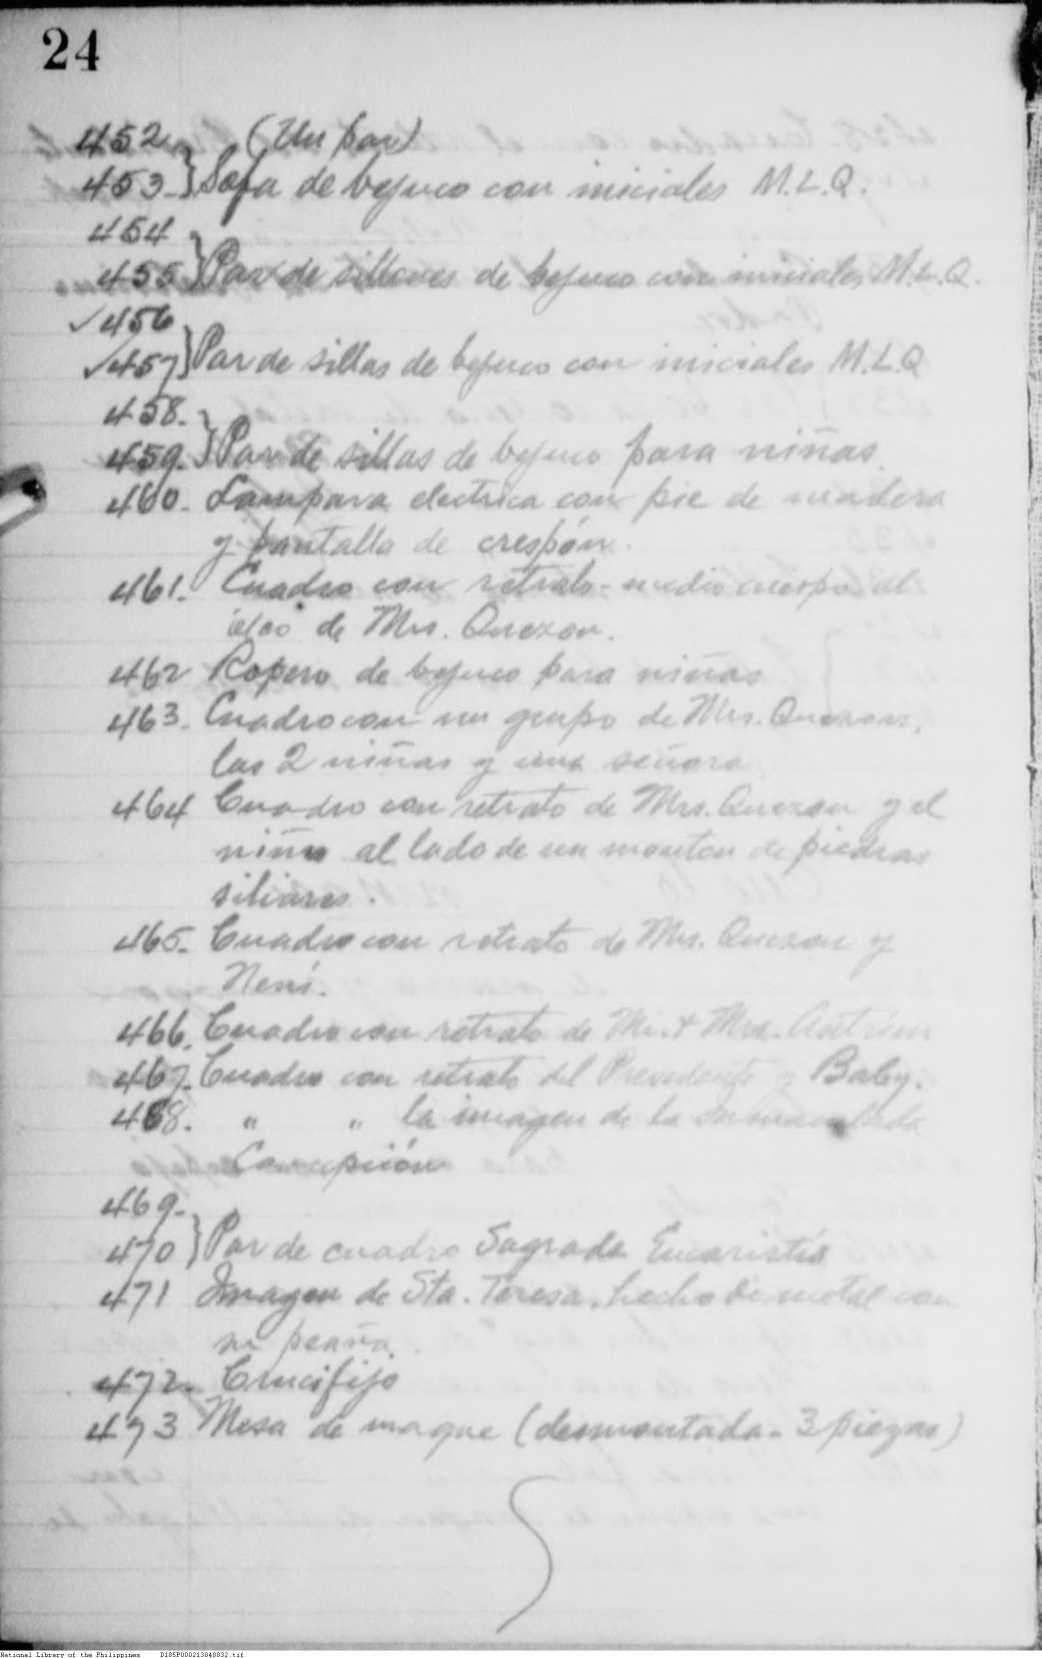 24
452 (Un par)
453 } Sofa de bejuco con iniciales M.L.Q.
454
455 } Par de sillones de bejuco con iniciales M.L.Q.
✓456
✓457 } Par de sillas de bejuco con iniciales M.L.Q
458.
459. } Par de sillas de bejuco para niñas.
460. Lampara electrica con pie de madera
y pantalla de crespón.
461. Cuadro con retrato - medio cuerpo al
de Mrs. Quezon.
462 Ropero de bejuco para niñas
463. Cuadro con un grupo de Mrs. Quezon,
las 2 niñas y una señora
464 Cuadro con retrato de Mrs. Quezon y el
niño al lado de un monton de piedras
siliares.
465. Cuadro con retrato de Mrs. Quezon y
Není.
466. Cuadro con retrato de Mr. & Mrs.
467. Cuadro con retrato del Presidente y Baby.
468. " " la imagen de la Inmaculada
Concepción
469.
470 } Par de cuadro Sagrada Eucaristía
471 Imagen de Sta. Teresa, hecho de metal con
su peaña.
472. Crucifijo
473 Mesa de maque (desmontada - 3 piezas)
National Library of the Philippines D185P000213040832.tif